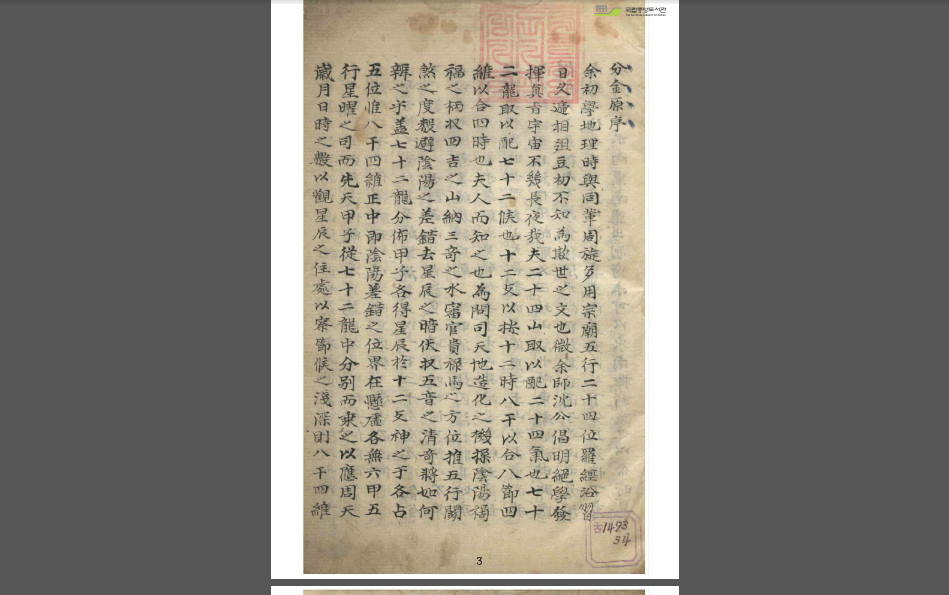 分金原序
余初學地理時與同輩周旋多用宗廟五行二十四位羅經浴習
日久遞相沮豆初不知為欺世之文也微余師沈公倡明絕學發
揮真旨宇宙不幾長夜哉夫二十四山取以配二十四氣也七十
二龍取以配七十二候也十二支以按十二時八干以合八節四
維以合四時也夫人而知之也為問司天地造化之機操陰陽禍
福之柄収四吉之山納三奇之水富官貴祿馬之方位推五行關
煞之度數避陰陽之差錯去星辰之暗伏収五音之清奇將如何
辨之乎盖七十二龍分佈甲子各得星辰於十二支神之于各占
五位惟八干四維正中即陰陽差錯之位界在懸虛各無六甲五
行星曜之司而先天甲子從七十二龍中分別而乘之以應周天
歲月日時之數以觀星辰之住處以察節候之淺深則八干四維
국립중앙도서관
3
古1493
34